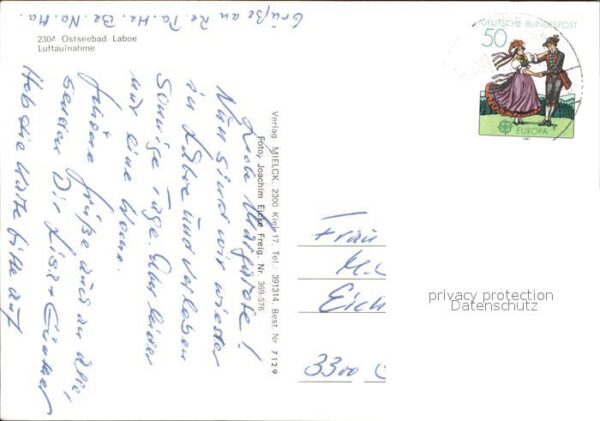 Grüße an Re. Pa. He. Be. No. Ma.
2304 Ostseebad Laboe
Luftaufnahme
Liebe Margarete!
Nun sind wir wieder
in Laboe und verleben
sonnige Tage. Aber leider
nur eine Woche.
Schöne Grüße auch an alle,
senden Dir Lisa + Günther
Heb die Karte bitte auf
Verlag MIELCK, 2300 Kiel 17, Tel.: 391314, Best. Nr. 7129
Foto: Joachim Freig. Nr. 369-576
DEUTSCHE BUNDESPOST
50
EUROPA
1981
Frau
M.
Eich
3300
privacy protection
Datenschutz